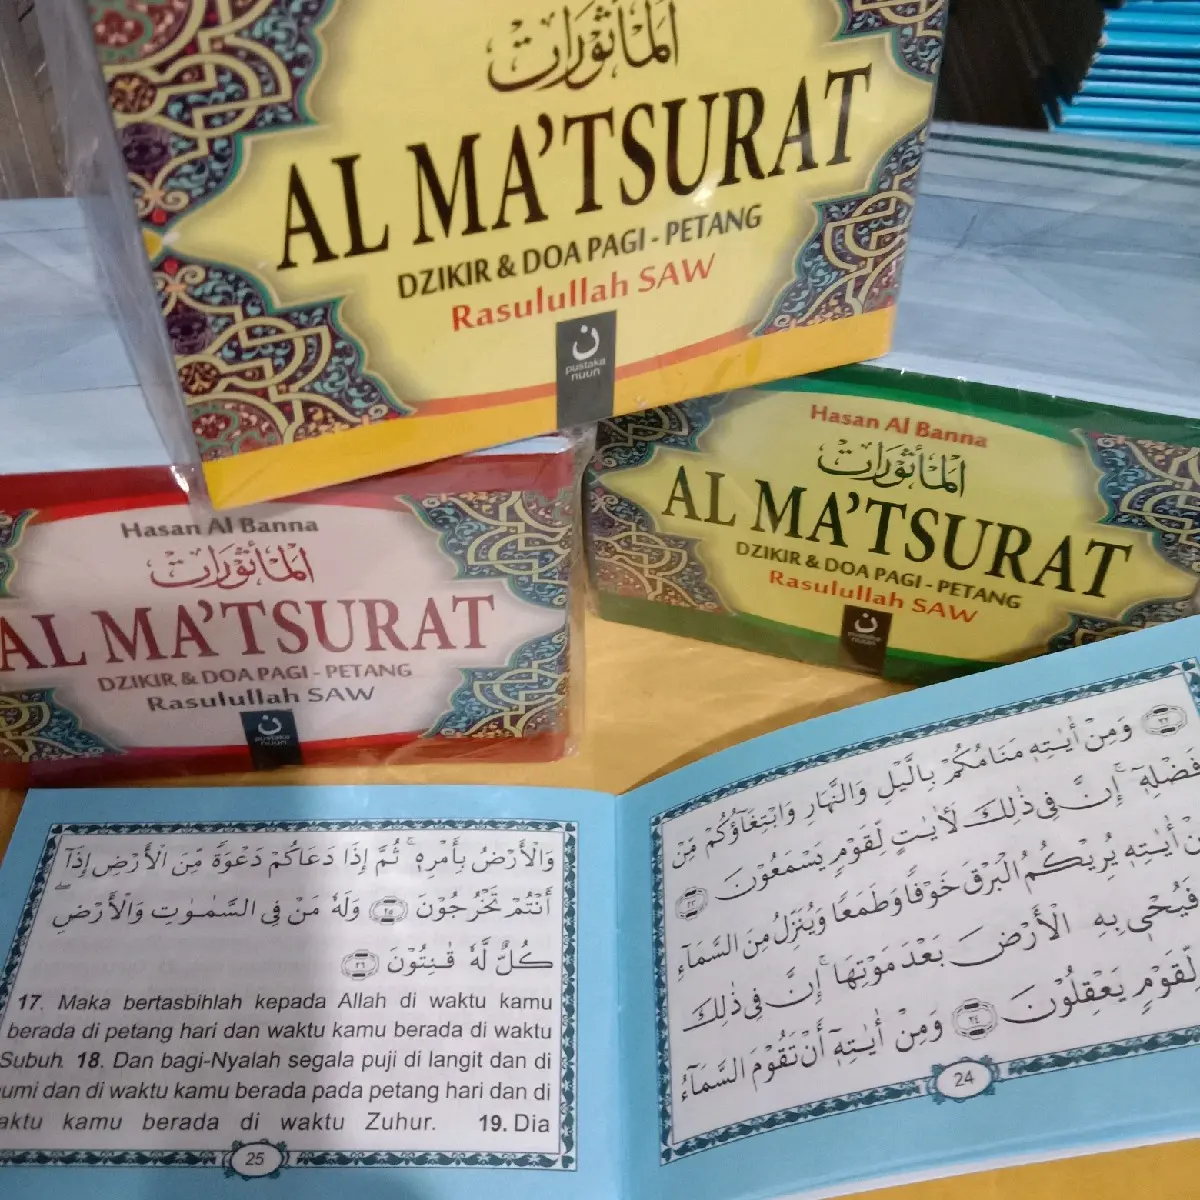 المأثورات
AL MA'TSURAT
DZIKIR & DOA PAGI - PETANG
Rasulullah SAW
ن
pustaka
nuun
Hasan Al Banna
المأثورات
AL MA'TSURAT
DZIKIR & DOA PAGI - PETANG
Rasulullah SAW
ن
pustaka
nuun
Hasan Al Banna
المأثورات
AL MA'TSURAT
DZIKIR & DOA PAGI - PETANG
Rasulullah SAW
ن
pustaka
nuun
٢٢ وَمِنْ أٰيٰتِهٖ مَنَامُكُمْ بِالَّيْلِ وَالنَّهَارِ وَابْتِغَآؤُكُمْ مِّنْ
فَضْلِهٖ ۚ إِنَّ فِيْ ذٰلِكَ لَأٰيٰتٍ لِّقَوْمٍ يَسْمَعُوْنَ ٢٣
أٰيٰتِهٖ يُرِيْكُمُ الْبَرْقَ خَوْفًا وَطَمَعًا وَيُنَزِّلُ مِنَ السَّمَآءِ
فَيُحْيٖ بِهِ الْأَرْضَ بَعْدَ مَوْتِهَا ۚ إِنَّ فِيْ ذٰلِكَ
لِّقَوْمٍ يَعْقِلُوْنَ ٢٤ وَمِنْ أٰيٰتِهٖٓ أَنْ تَقُوْمَ السَّمَآءُ
24
وَالْأَرْضُ بِأَمْرِهٖ ۚ ثُمَّ إِذَا دَعَاكُمْ دَعْوَةً مِّنَ الْأَرْضِ إِذَآ
أَنْتُمْ تَخْرُجُوْنَ ٢٥ وَلَهٗ مَنْ فِى السَّمٰوٰتِ وَالْأَرْضِ ۖ
كُلٌّ لَّهٗ قٰنِتُوْنَ ٢٦
17. Maka bertasbihlah kepada Allah di waktu kamu
berada di petang hari dan waktu kamu berada di waktu
Subuh. 18. Dan bagi-Nyalah segala puji di langit dan di
umi dan di waktu kamu berada pada petang hari dan di
aktu kamu berada di waktu Zuhur. 19. Dia
25